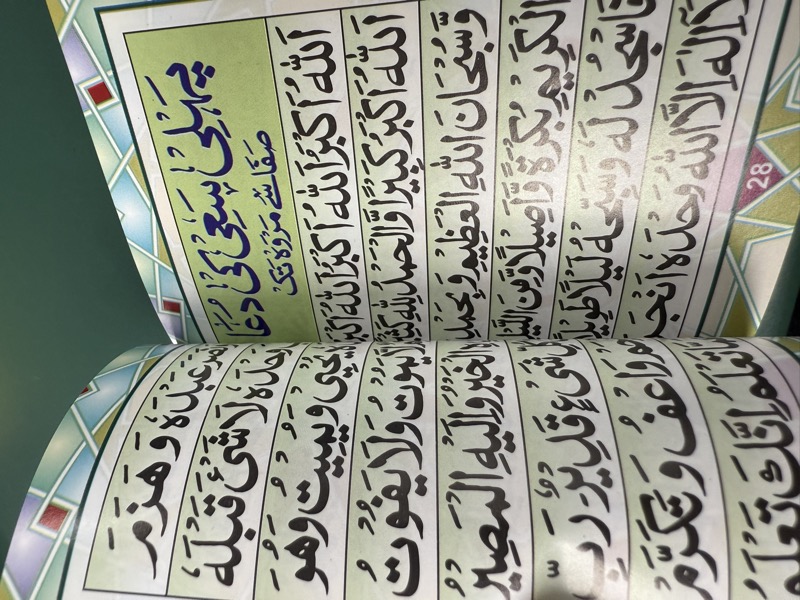 پہلی سعی کی دعا
صفا سے مروہ تک
اَللّٰهُ اَكْبَرُ اَللّٰهُ اَكْبَرُ اَللّٰهُ اَكْبَرُ
اَللّٰهُ اَكْبَرُ كَبِيْرًا وَّالْحَمْدُ لِلّٰهِ
وَّسُبْحَانَ اللّٰهِ الْعَظِيْمِ
الْكَرِيْمِ بُكْرَةً وَّاَصِيْلًا وَّمِنَ
فَاسْجُدْ لَهٗ وَسَبِّحْهُ لَيْلًا
لَاۤ اِلٰهَ اِلَّا اللّٰهُ وَحْدَهٗ
28
عَبْدَهٗ وَهَزَمَ
وَحْدَهٗ لَا شَيْءَ قَبْلَهٗ
يُحْيِيْ وَيُمِيْتُ وَهُوَ
يَمُوْتُ وَلَا يَفُوْتُ
الْخَيْرُ وَاِلَيْهِ الْمَصِيْرُ
شَيْءٍ قَدِيْرٌ رَبِّ
وَاعْفُ وَتَكَرَّمْ
تَعْلَمُ اِنَّكَ تَعْلَمُ